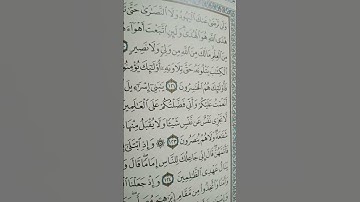 وَلَن تَرْضَىٰ عَنكَ ٱلْيَهُودُ وَلَا ٱلنَّصَـٰرَىٰ حَتَّىٰ
هُدَى ٱللَّهِ هُوَ ٱلْهُدَىٰ وَلَئِنِ ٱتَّبَعْتَ أَهْوَآءَهُم
مِنَ ٱلْعِلْمِ مَا لَكَ مِنَ ٱللَّهِ مِن وَلِىٍّ وَلَا نَصِيرٍ
ٱلْكِتَـٰبَ يَتْلُونَهُۥ حَقَّ تِلَاوَتِهِۦٓ أُو۟لَـٰٓئِكَ يُؤْمِنُونَ
فَأُو۟لَـٰٓئِكَ هُمُ ٱلْخَـٰسِرُونَ ١٢١ يَـٰبَنِىٓ إِسْرَٰٓءِيلَ
أَنْعَمْتُ عَلَيْكُمْ وَأَنِّى فَضَّلْتُكُمْ عَلَى ٱلْعَـٰلَمِينَ
لَّا تَجْزِى نَفْسٌ عَن نَّفْسٍ شَيْـًٔا وَلَا يُقْبَلُ مِنْهَا
شَفَـٰعَةٌ وَلَا هُمْ يُنصَرُونَ ١٢٣ ۞ وَإِذِ ٱبْتَلَىٰٓ
فَأَتَمَّهُنَّ قَالَ إِنِّى جَاعِلُكَ لِلنَّاسِ إِمَامًا قَالَ وَ
يَنَالُ عَهْدِى ٱلظَّـٰلِمِينَ ١٢٤ وَإِذْ جَعَلْنَا
وَأَمْنًا وَٱتَّخِذُوا۟ مِن مَّقَامِ إِبْرَٰهِـۧمَ مُصَلًّى